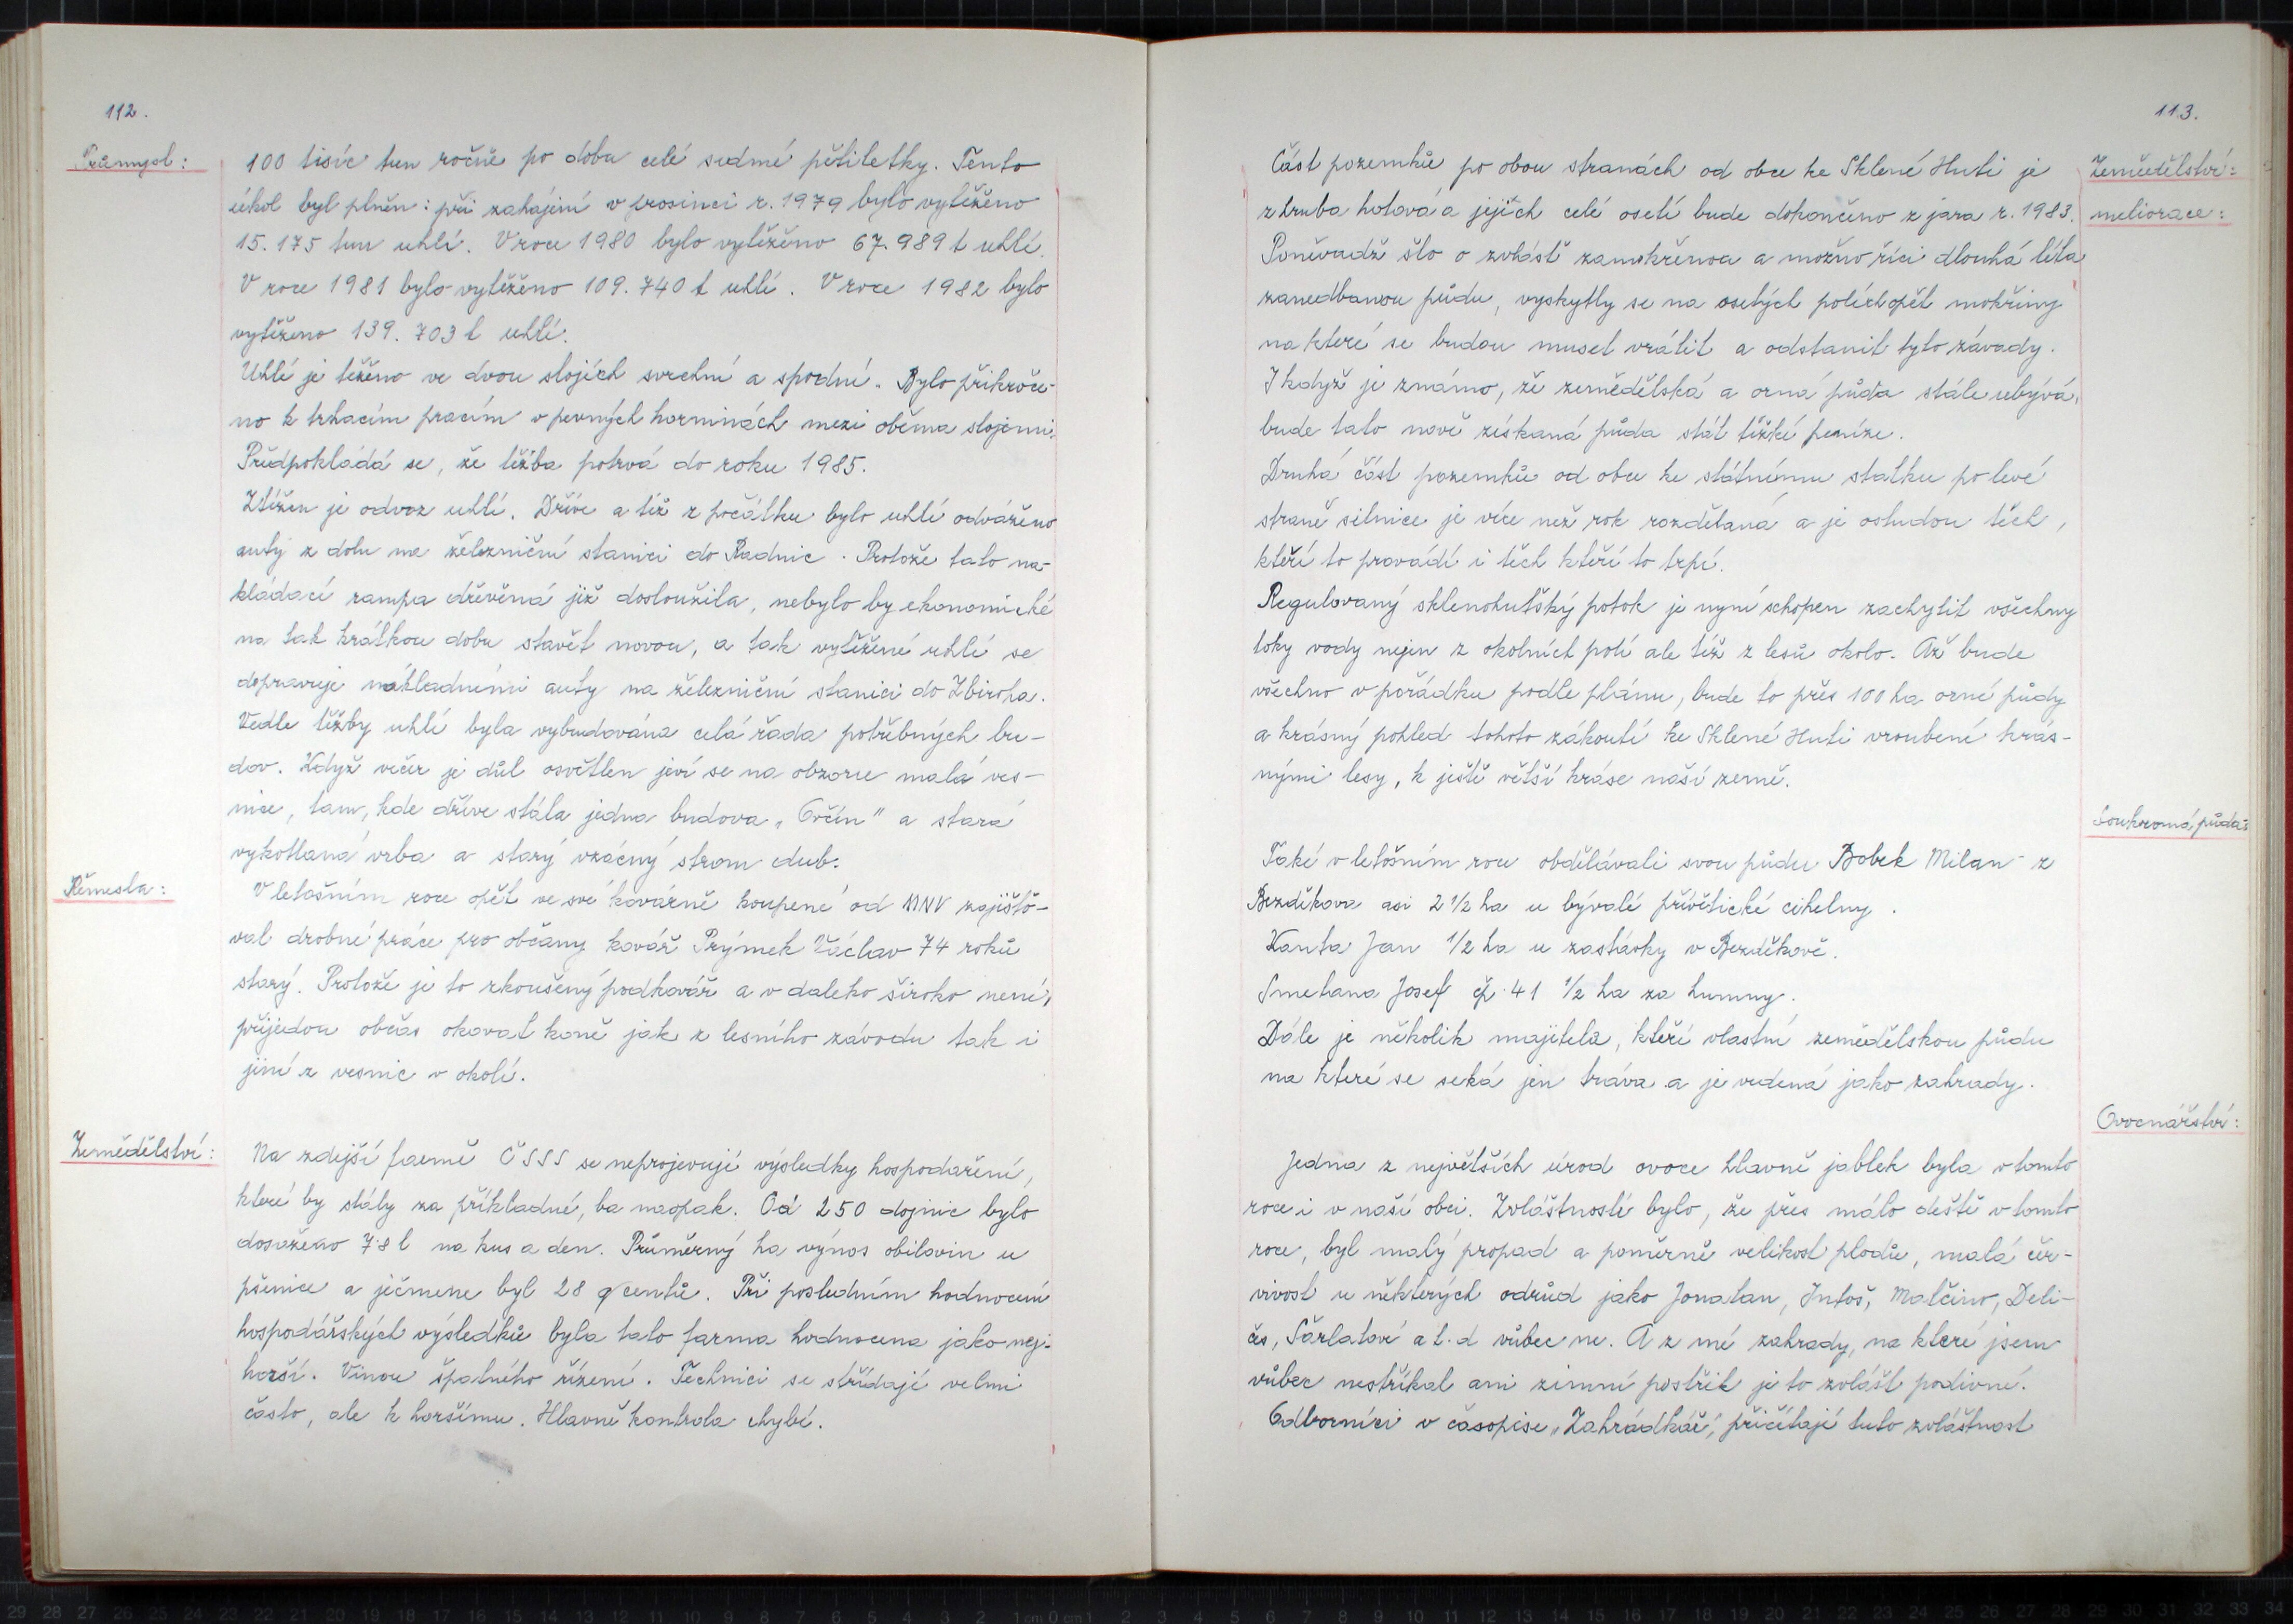 112.
Průmysl:
100 tisíc tun ročně po dobu celé sedmé pětiletky. Tento
úkol byl plněn: při zahájení v prosinci r. 1979 bylo vytěženo
15.175 tun uhlí. V roce 1980 bylo vytěženo 67.989 t uhlí.
V roce 1981 bylo vytěženo 109.740 t uhlí. V roce 1982 bylo
vytěženo 139.703 t uhlí.
Uhlí je těženo ve dvou slojích svrchní a spodní. Bylo přikroče-
no k trhacím pracím v pevných horninách mezi oběma slojemi.
Předpokládá se, že těžba potrvá do roku 1985.
Ztížen je odvoz uhlí. Dříve a též z počátku bylo uhlí odváženo
auty z dolu na železniční stanici do Radnic. Protože tato na-
kládací rampa dřevěná již dosloužila, nebylo by ekonomické
na tak krátkou dobu stavět novou, a tak vytěžené uhlí se
dopravuje nákladními auty na železniční stanici do Zbiroha.
Vedle těžby uhlí byla vybudována celá řada potřebných bu-
dov. Když večer je důl osvětlen jeví se na obzoru malá ves-
nice, tam, kde dříve stála jedna budova „Ovčín" a stará
vykotlaná vrba a starý vzácný strom dub.
Řemesla:
V letošním roce opět ve své kovárně koupené od MNV zajišťo-
val drobné práce pro občany kovář Prýmek Václav 74 roků
starý. Protože je to zkoušený podkovář a v daleko široko není,
přijedou občas okovat koně jak z lesního závodu tak i
jiní z vesnic v okolí.
Zemědělství:
Na zdejší farmě ČSSS se neprojevují výsledky hospodaření,
které by stály za příkladné, ba naopak. Od 250 dojnic bylo
dosaženo 7.8 l na kus a den. Průměrný ha výnos obilovin u
pšenice a ječmene byl 28 q centů. Při posledním hodnocení
hospodářských výsledků byla tato farma hodnocena jako nej-
horší. Vinou špatného řízení. Technici se střídají velmi
často, ale k horšímu. Hlavně kontrola chybí.
113.
Zemědělství:
meliorace:
Část pozemků po obou stranách od obce ke Sklené Huti je
zhruba hotová a jejich celé osetí bude dokončeno z jara r. 1983.
Poněvadž šlo o zvlášť zamokřenou a možno říci dlouhá léta
zanedbanou půdu, vyskytly se na osetých polích opět mokřiny
na které se budou muset vrátit a odstanit tyto závady.
I když je známo, že zemědělská a orná půda stále ubývá,
bude tato nově získaná půda stát těžké peníze.
Druhá část pozemků od obce ke státnímu statku po levé
straně silnice je více než rok rozdělaná a je ostudou těch,
kteří to provádí i těch kteří to trpí.
Regulovaný sklenohutský potok je nyní schopen zachytit všechny
toky vody nejen z okolních polí ale též z lesů okolo. Až bude
všechno v pořádku podle plánu, bude to přes 100 ha orné půdy
a krásný pohled tohoto zákoutí ke Sklené Huti vroubení krás-
nými lesy, k ještě větší kráse naší země.
Soukromá půda:
Také v letošním roce obdělávali svou půdu Bobek Milan z
Bezděkova asi 2 1/2 ha u bývalé přívětické cihelny.
Kanta Jan 1/2 ha u zastávky v Bezděkově.
Smetana Josef čp. 41 1/2 ha za humny.
Dále je několik majitela, kteří vlastní zemědělskou půdu
na které se seká jen tráva a je vedená jako zahrady.
Ovocnářství:
Jedna z největších úrod ovoce hlavně jablek byla v tomto
roce i v naší obci. Zvláštností bylo, že přes málo deště v tomto
roce, byl malý propad a poměrně velikost plodů, malá čer-
vivost u některých odrůd jako Jonatan, Jntoš, Malčino, Deli-
čes, Šarlatoví a t.d vůbec ne. A z mé zahrady, na které jsem
vůbec nestříkal ani zimní postřik je to zvlášt podivné.
Odborníci v časopise „Zahrádkář", přičítají tuto zvláštnost